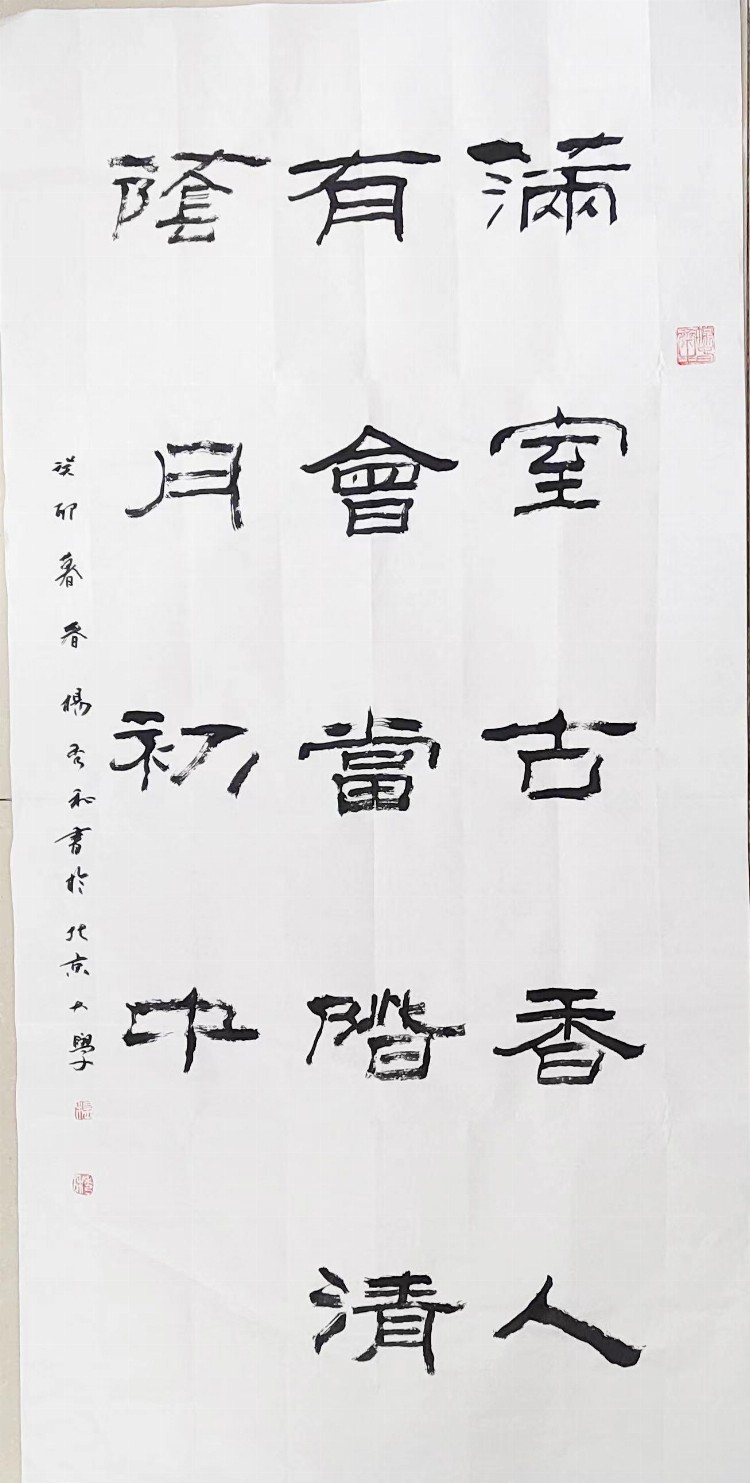 滿室古香人
有會當階清
蔭月初中
癸卯暮春楊吾和書於北京大學